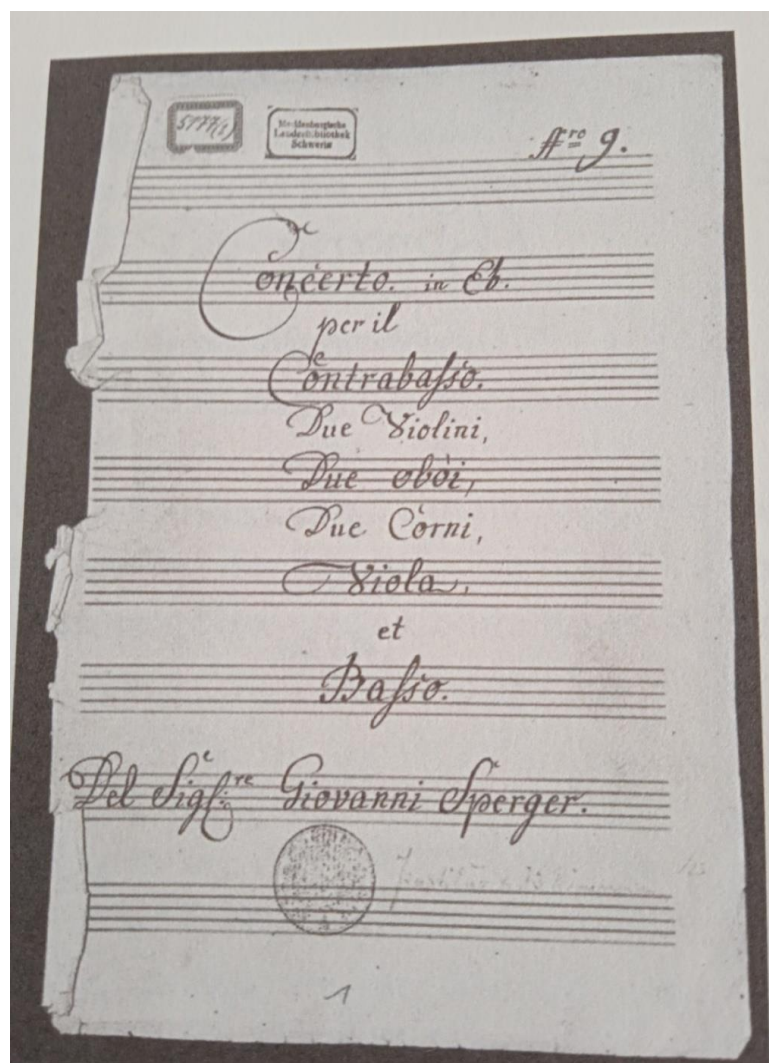 5177(1)
Mecklenburgische
Landesbibliothek
Schwerin
Nro 9.
Concerto. in Eb.
per il
Contrabaſso.
Due Violini,
Due oboi,
Due Corni,
Viola,
et
Baſso.
Del Sigl:re Giovanni Sperger.
1